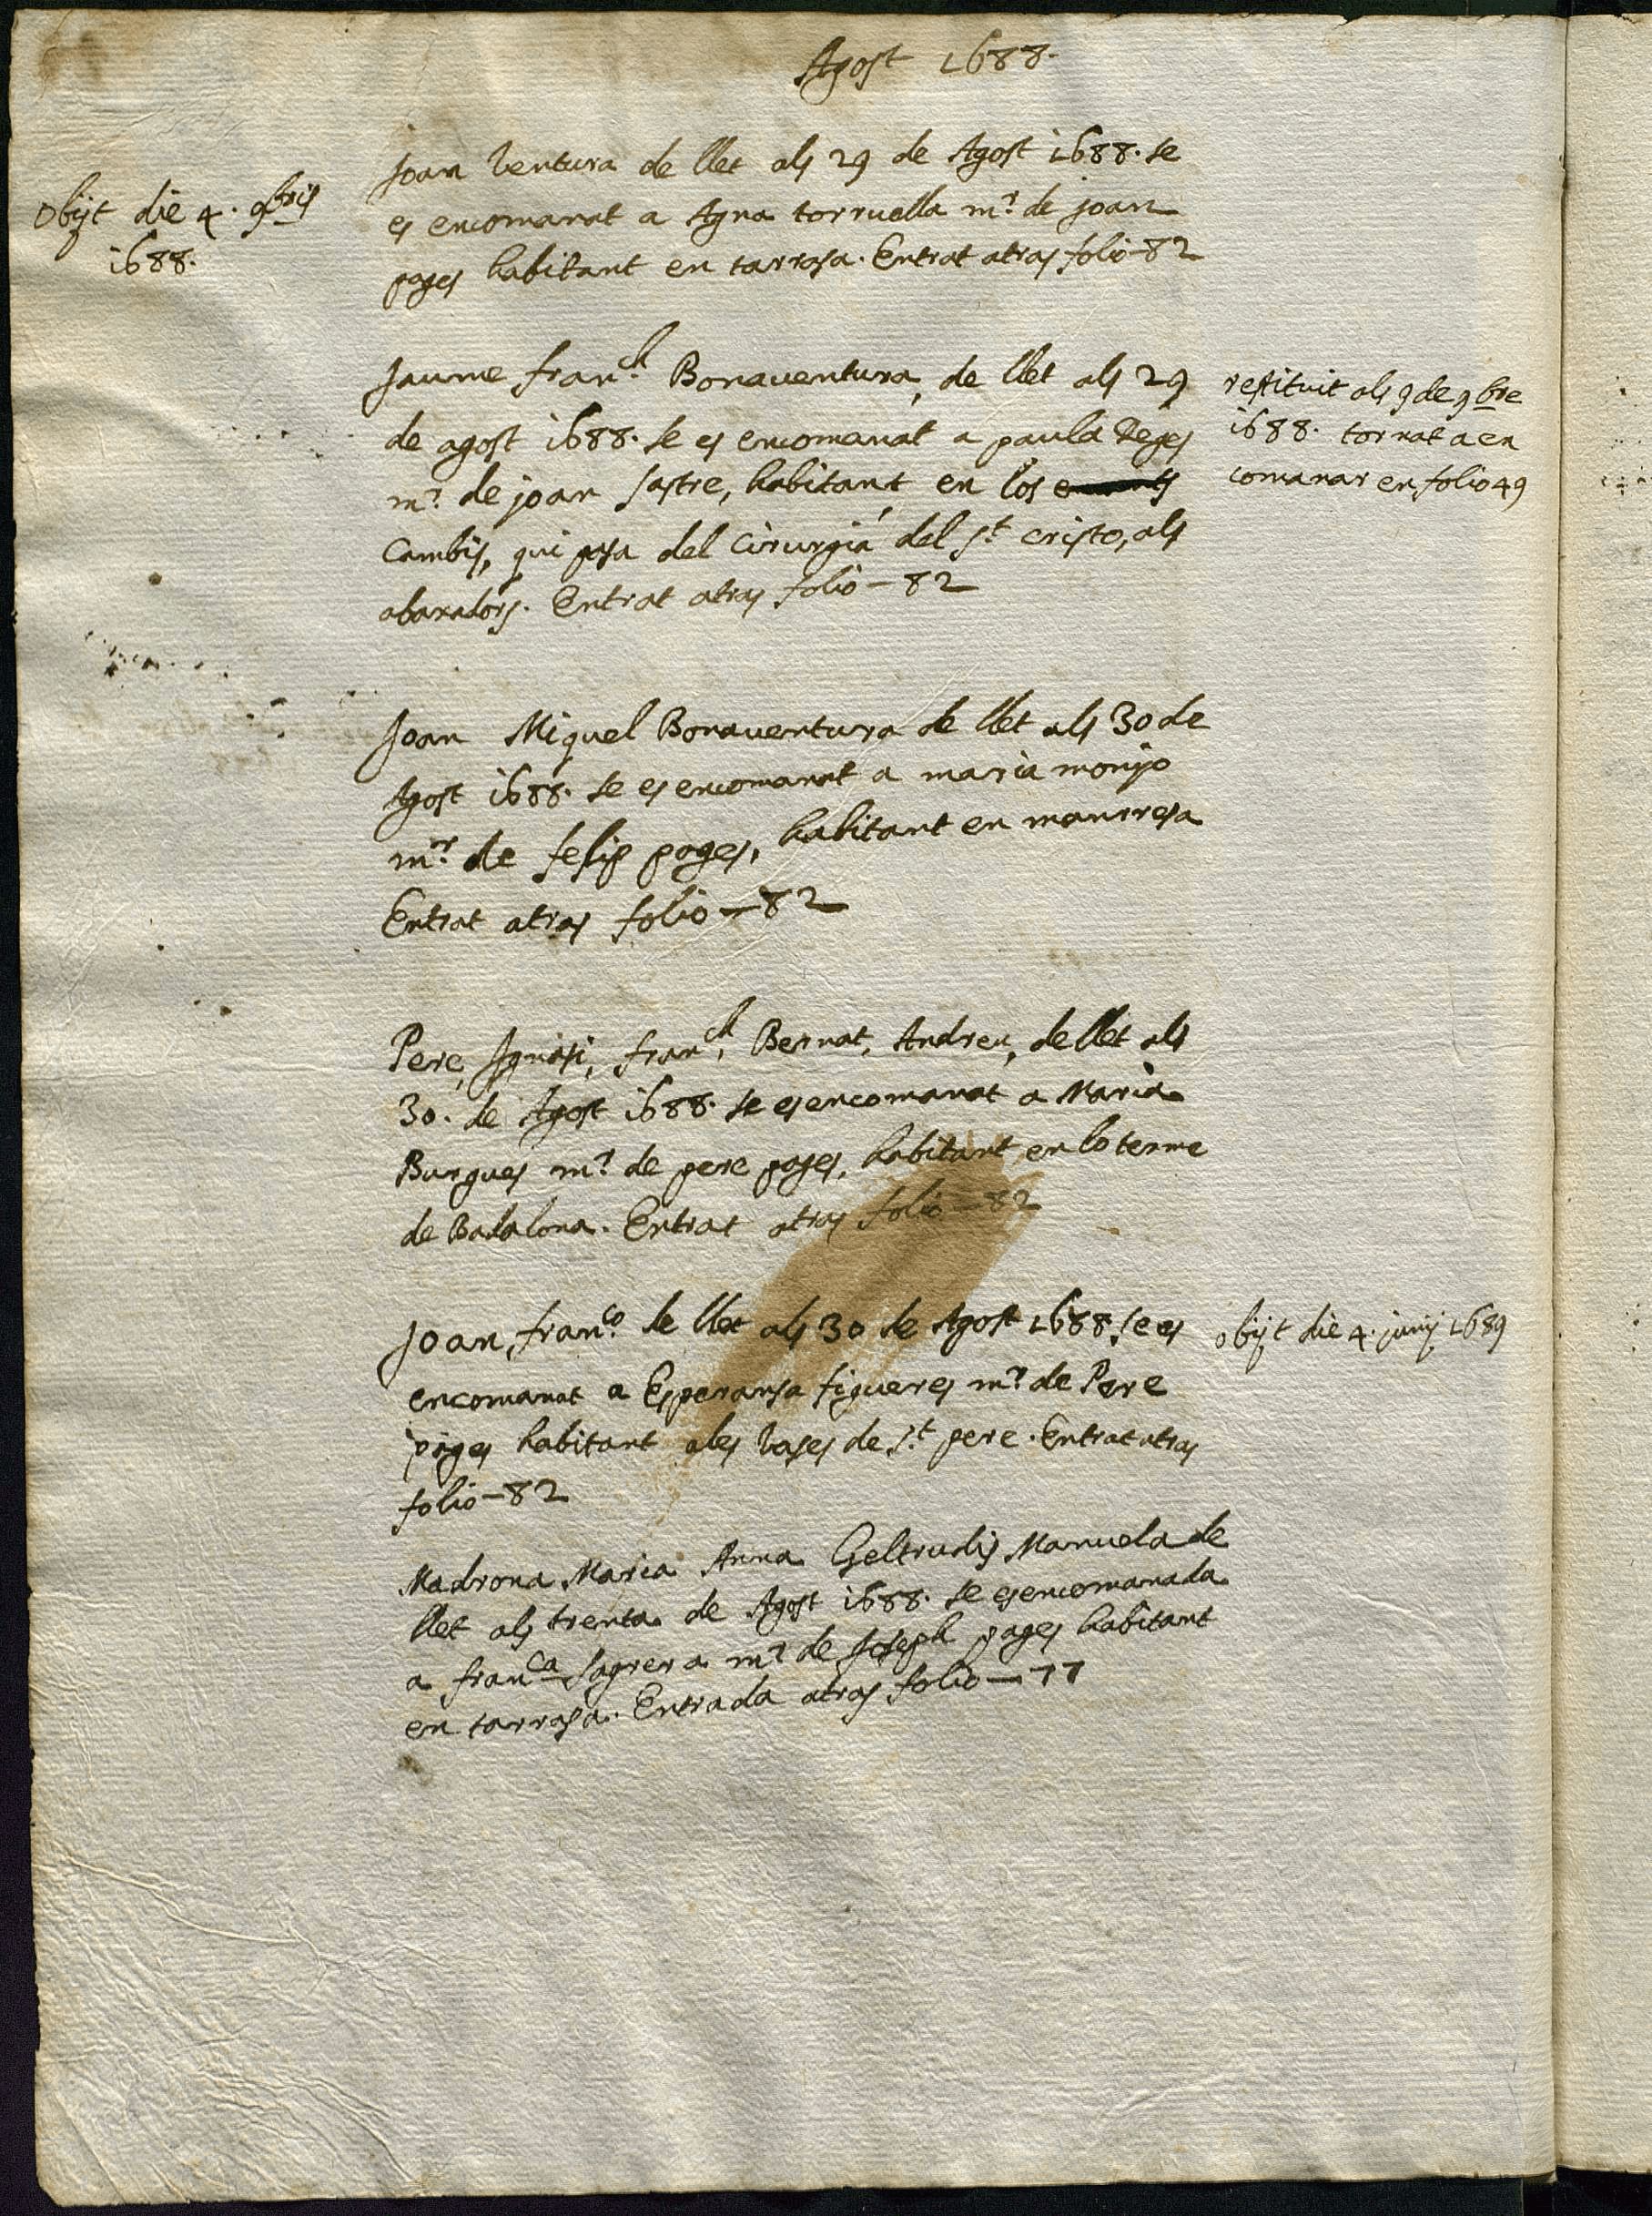 Agost 1688.
Obijt die 4. 9bris
1688.
Joan Ventura de llet als 29 de Agost 1688. se
es encomanat a Agna torruella mr. de joan
pages habitant en tarrasa. Entrat atras folio - 82
Jaume franch. Bonaventura, de llet als 29
de agost 1688. se es encomanat a paula Reges
mr. de joan sastre, habitant en los
Cambis, qui posa del Cirurgiá del St cristo, als
abaxadors. Entrat atras folio - 82
restituit als 9 de 9bre
1688. tornat a en
comanar en folio 49
Joan Miquel Bonaventura de llet als 30 de
Agost 1688. se es encomanat a maria monjo
mr. de felip pages, habitant en manrresa
Entrat atras folio - 82
Pere, Ignasi, franch, Bernat, Andreu, de llet als
30. de Agost 1688. se es encomanat a Maria
Burgues mr. de pere pages, habitant en lo terme
de Badalona. Entrat atras folio - 82
Joan, franco. de llet als 30 de Agost 1688. se es
encomanat a Esperansa figueres mr. de Pere
pages habitant a les vases de St. pere. Entrat atras
folio - 82
obijt die 4. junij 1689
Madrona Maria Anna Geltrudis Manuela de
llet als trenta de Agost 1688. se es encomanada
a franca Sagrera mr. de Joseph pages habitant
en tarrasa. Entrada atras folio - 77